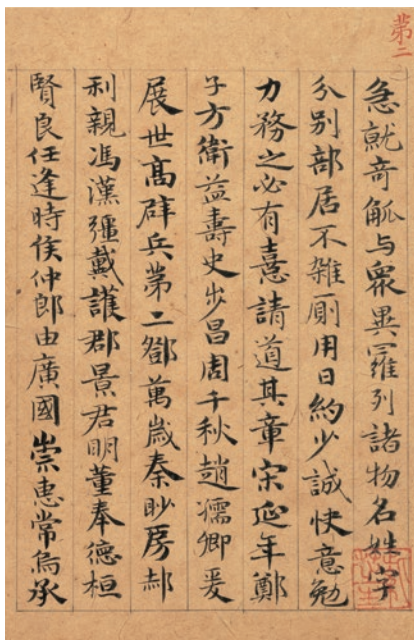 第二
急就奇觚与衆異羅列諸物名姓字
分別部居不雜厠用日約少誠快意勉
力務之必有憙請道其章宋延年鄭
子方衛益壽史步昌周千秋趙孺卿爰
展世高辟兵第二鄧萬歲秦眇房郝
利親馮漢彊戴護郡景君明董奉德桓
賢良任逢時侯仲郎由廣國崇惠常烏承